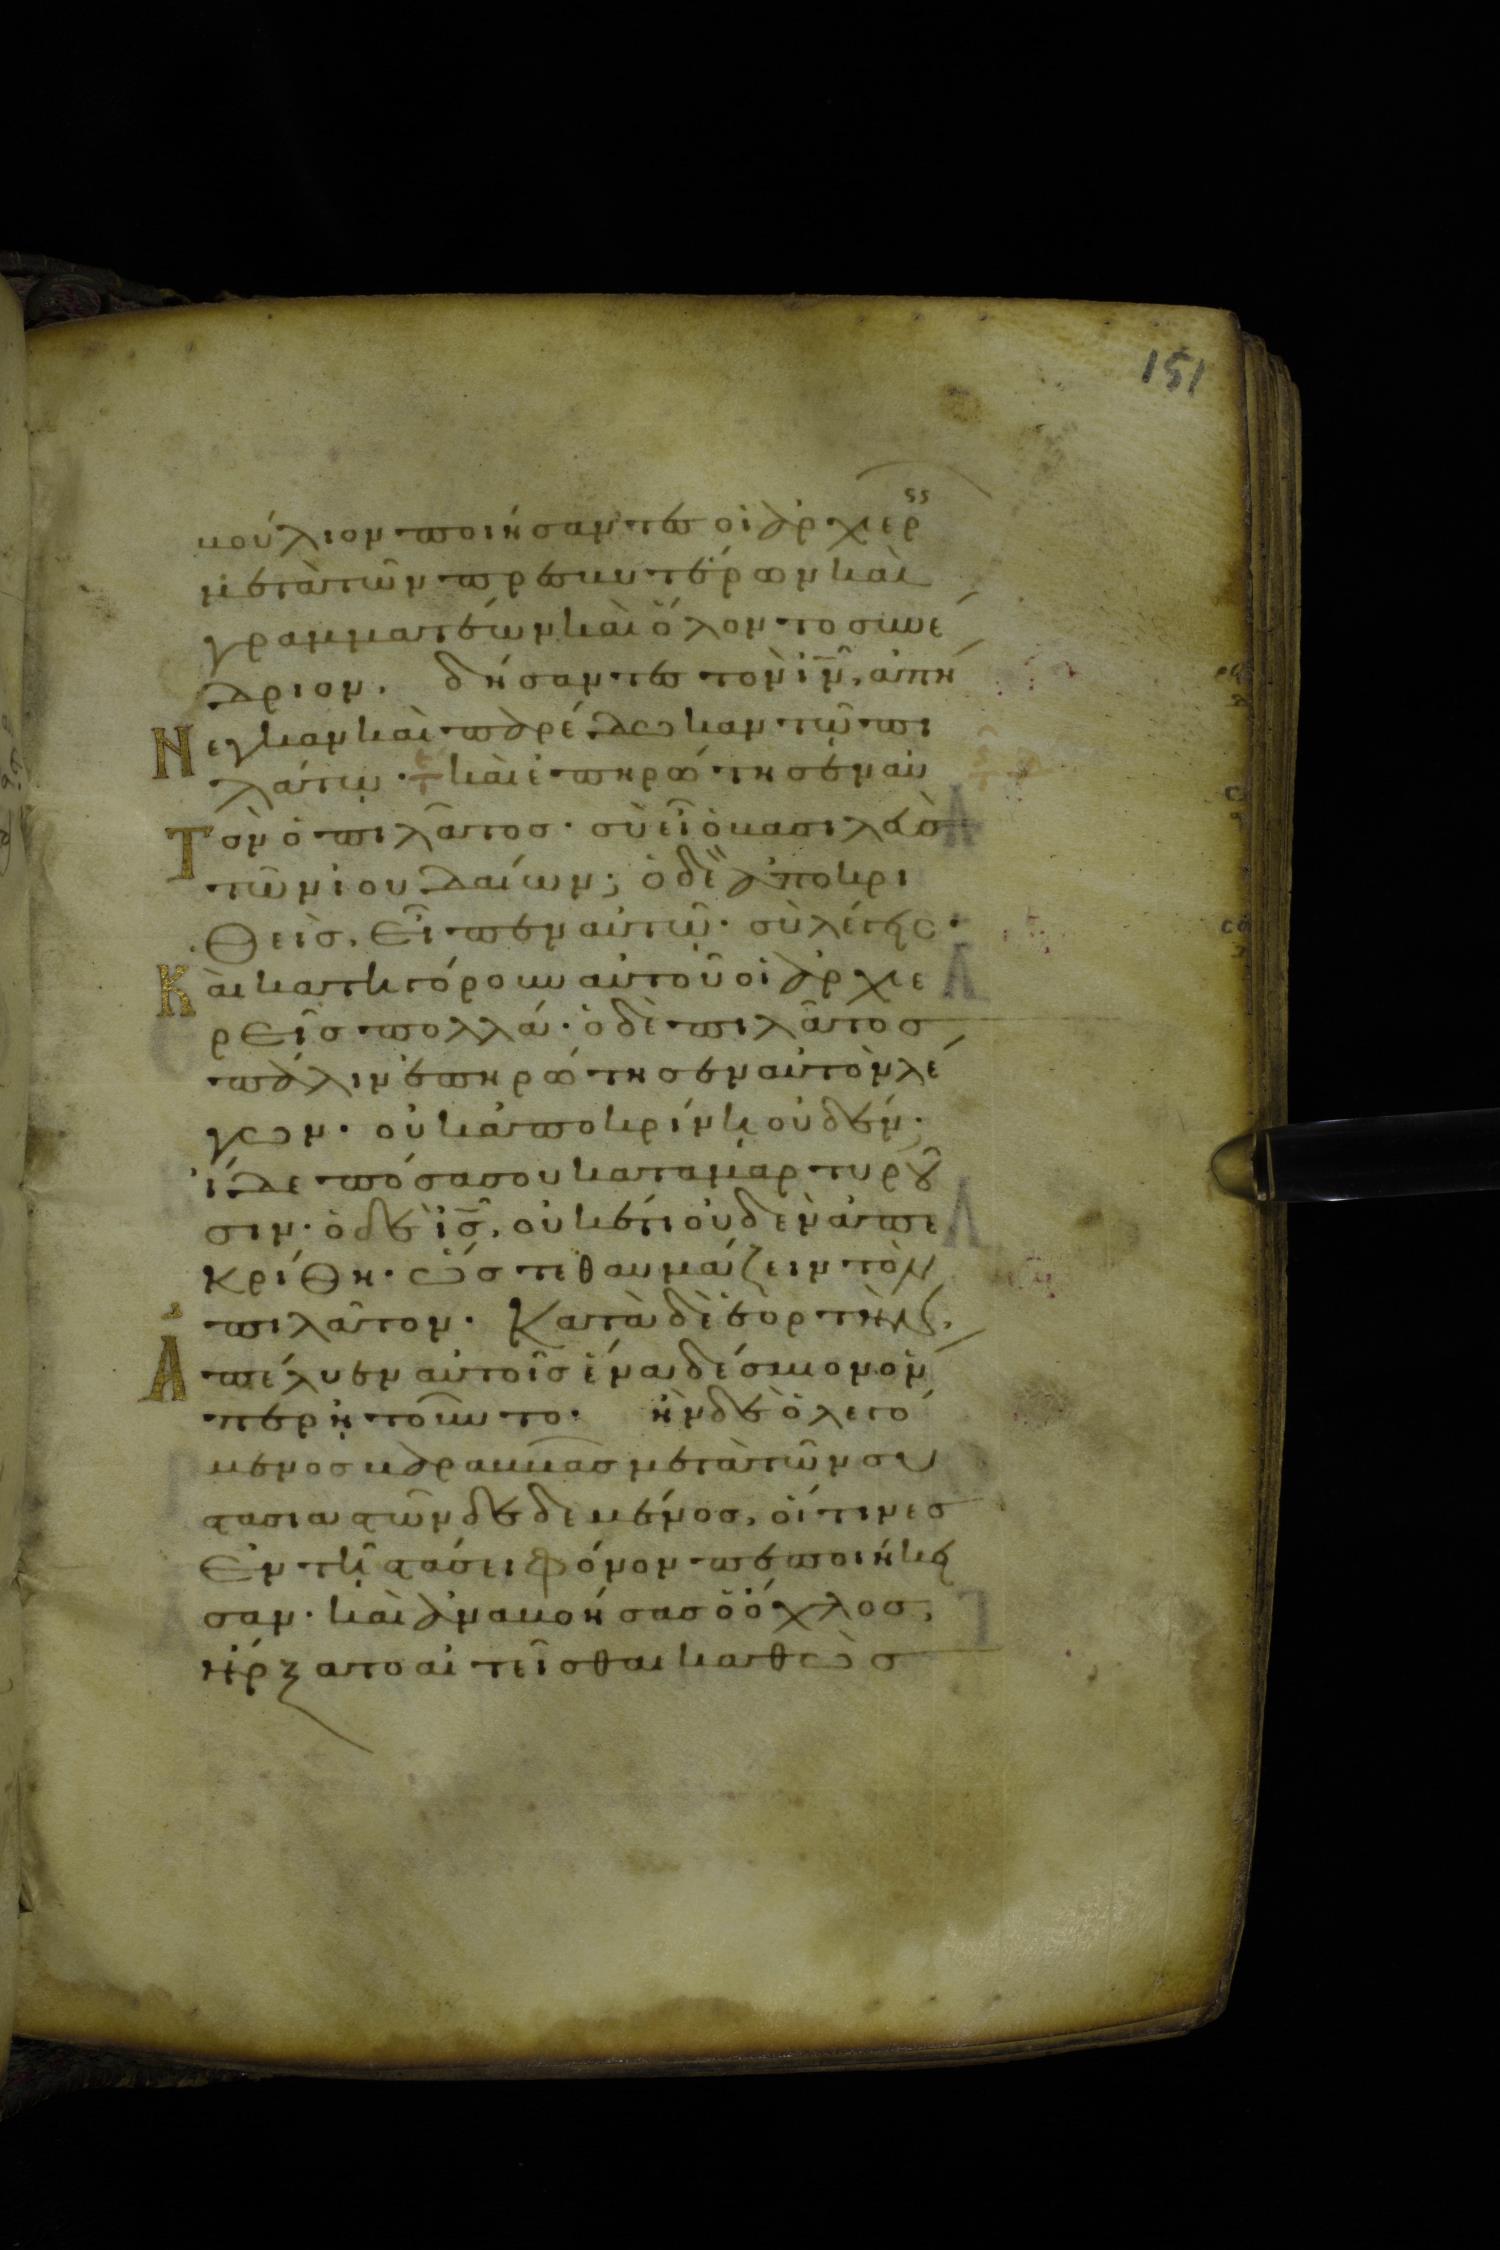 151
βούλιον ποιήσαντες οἱ ἀρχιερ
μετὰ τῶν πρεσβυτέρων καὶ
γραμματέων καὶ ὅλον το συνέ
δριον. δήσαντες τὸν ἰν, ἀπή
Νεγκαν καὶ παρέδωκαν τῶ πι
λάτω· καὶ ἐπηρώτησεν αὐ
Τὸν ὁ πιλᾶτος· σὺ εἶ ὁ βασιλεὺσ
τῶν ἰουδαίων; ὁ δὲ ἀποκρι
θεὶσ, εἶπεν αὐτῶ· σὺ λέγεις·
Καὶ κατηγόρουν αὐτοῦ οἱ ἀρχιε
ρεῖσ πολλά· ὁ δὲ πιλᾶτοσ
πάλιν ἐπηρώτησεν αὐτὸν λέ
γων· οὐκ ἀποκρίνη οὐδέν·
ἴδε πόσα σου καταμαρτυροῦ
σιν· ὁ δὲ ἰσ, οὐκέτι οὐδὲν ἀπε
κρίθη· ὥστε θαυμάζειν τὸν
πιλᾶτον. Κατὰ δὲ ἑορτὴν,
Ἀπέλυεν αὐτοῖσ ἕνα δέσμιον ὃν
περ ἠτοῦντο· ἦν δὲ ὁ λεγό
μενοσ βαραββᾶσ μετὰ τῶν συ
στασιαστῶν δεδεμένοσ, οἵτινεσ
ἐν τῆ στάσει φόνον πεποιήκει
σαν· καὶ ἀναβοήσασ ὁ ὄχλοσ,
ἤρξατο αἰτεῖσθαι καθὼσ